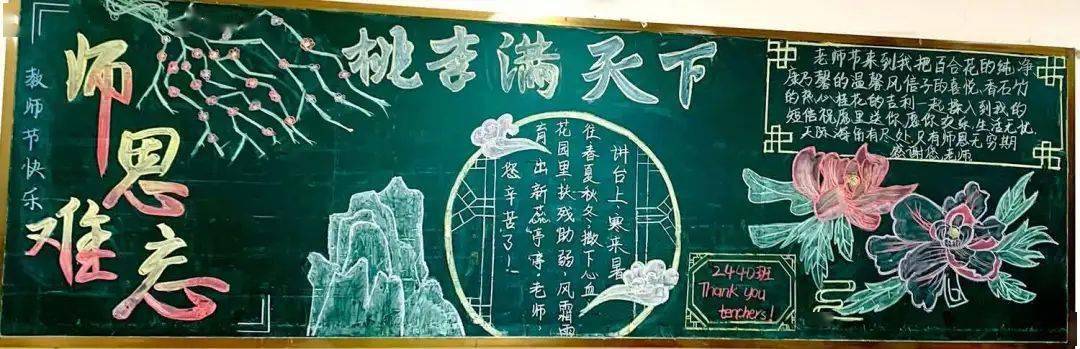 教师节快乐
师恩难忘
桃李满天下
讲台上、寒来暑
往春夏秋冬、撒下心血
花园里,扶残助弱,风霜雨
育出新蕊亭亭.老师,
您辛苦了!
老师节来到我把百合花的纯净
康乃馨的温馨风信子的喜悦,香石竹
的热心桂花的吉利一起揉入到我的
短信祝愿里送你愿你欢乐,生活无忧.
天际海角有尽处只有师恩无穷期
感谢您老师
2440班
Thank you
tenchers!